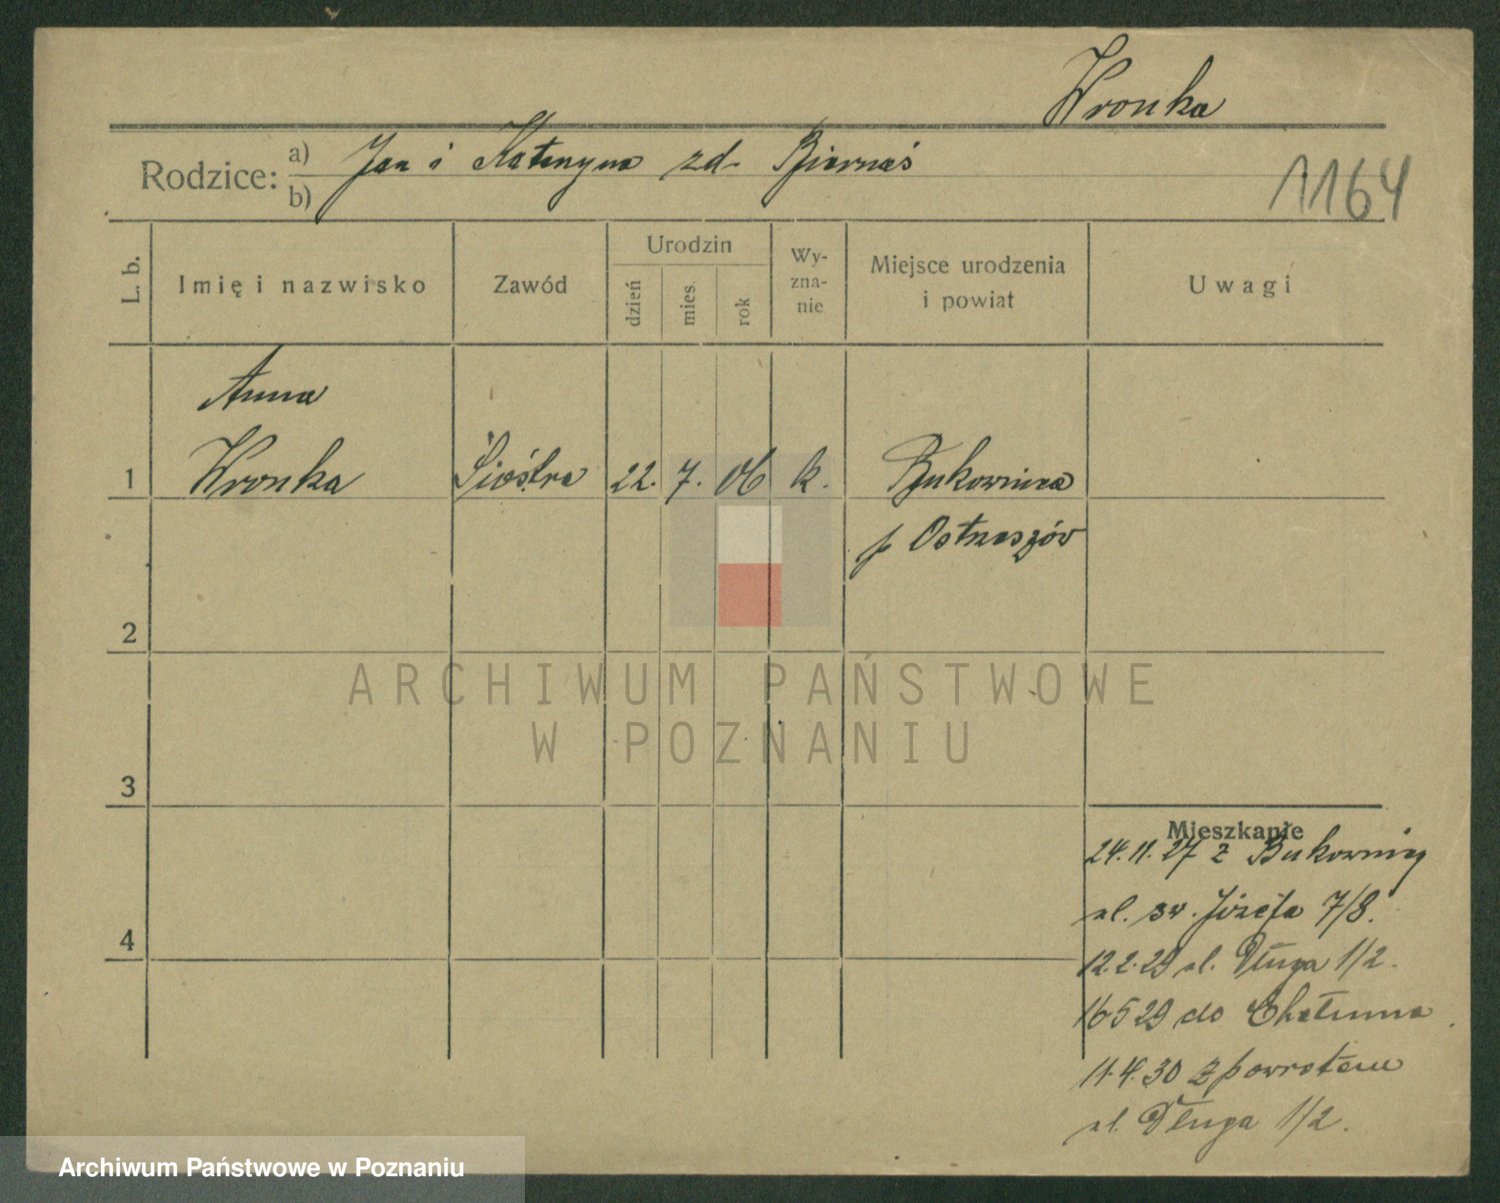 Wronka
Rodzice: a) Jan i Katarzyna zd. Biernaś
b)
1164
L. b. Imię i nazwisko Zawód Urodzin dzień mies. rok Wy-zna-nie Miejsce urodzenia i powiat Uwagi
Anna
1 Wronka Siostra 22. 7. 06 k. Bukownica
p Ostrzeszów
2
3
Mieszkanie
24.11.27 z Bukownicy
ul. św. Józefa 7/8.
4
12.2.29 ul. Długa 1/2.
16 5 29 do
11.4.30 z powrotem
ul. Długa 1/2.
ARCHIWUM PAŃSTWOWE
W POZNANIU
Archiwum Państwowe w Poznaniu